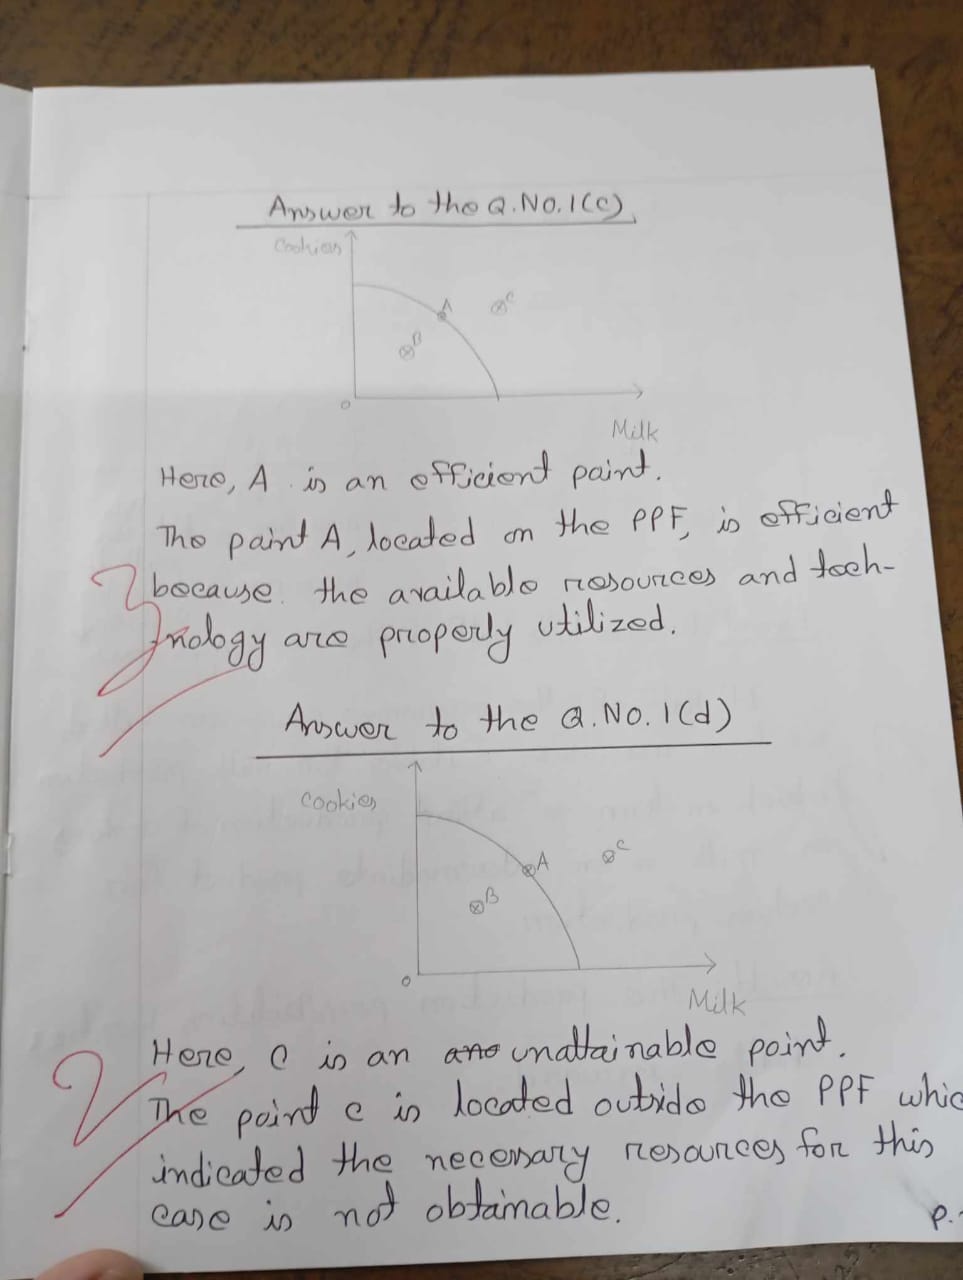 Answer to the Q.No.1(c)
Cookies
A
C
B
0
Milk
Here, A is an efficient point.
The point A, located on the PPF, is efficient
because the available resources and tech-
nology are properly utilized.
Answer to the Q.No.1(d)
Cookies
A
C
B
0
Milk
2
Here, C is an unattainable point.
The point c is located outside the PPF
indicated the necessary resources for this
case is not obtainable.